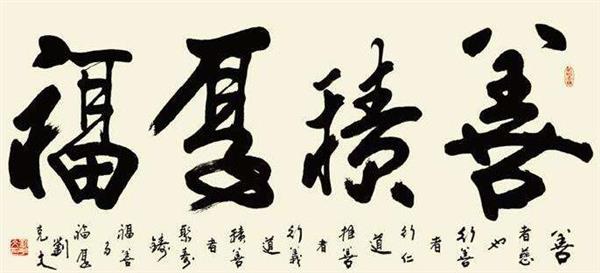 善積厚福
善
者慈
也
行善
者
行仁
道
推善
者
行義
道
積善
者
聚
福善
福厚
劉
克文